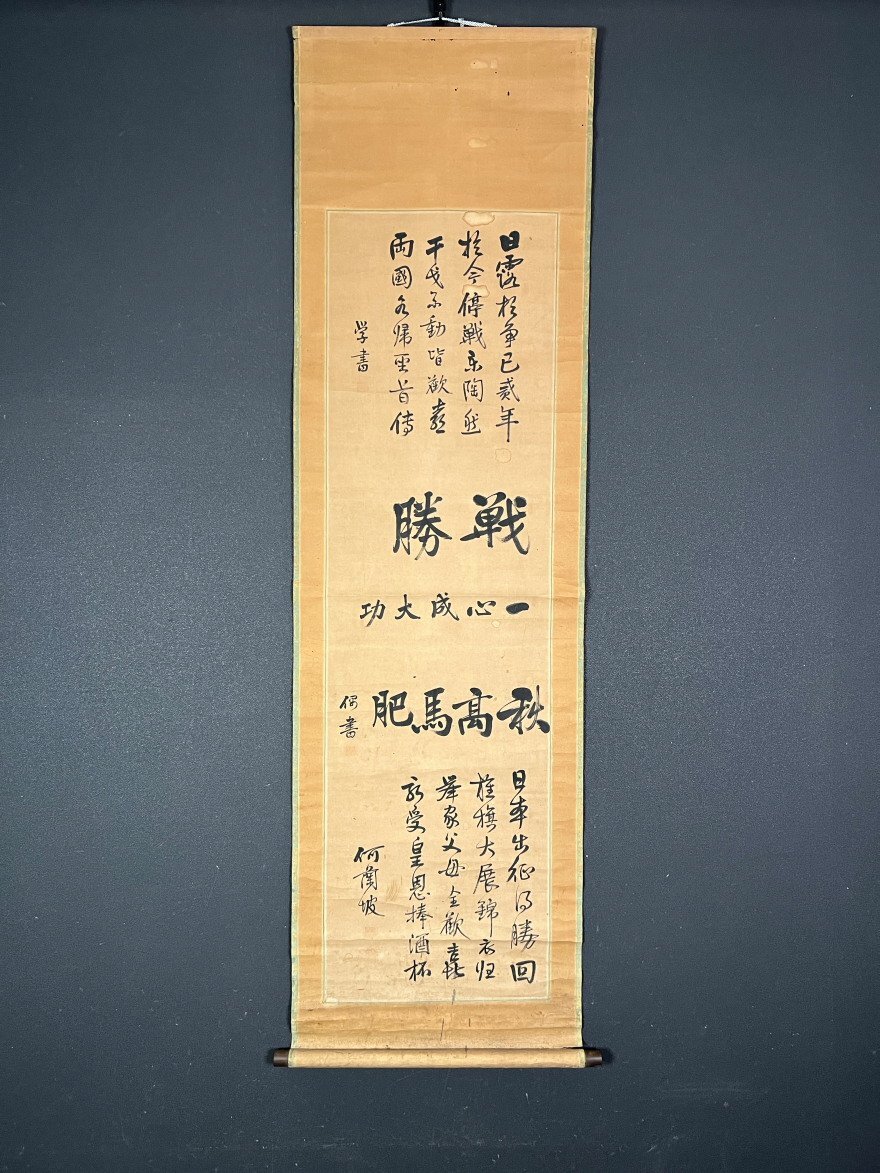 日露於争已貳年
於今停戦樂陶然
干戈不動皆歡喜
両國各帰聖旨传
学書
戦勝
一心成大功
秋高馬肥
偶書
日軍出征得勝回
旌旗大展錦衣归
举家父母全歡喜
受皇恩捧酒杯
何蘭坡